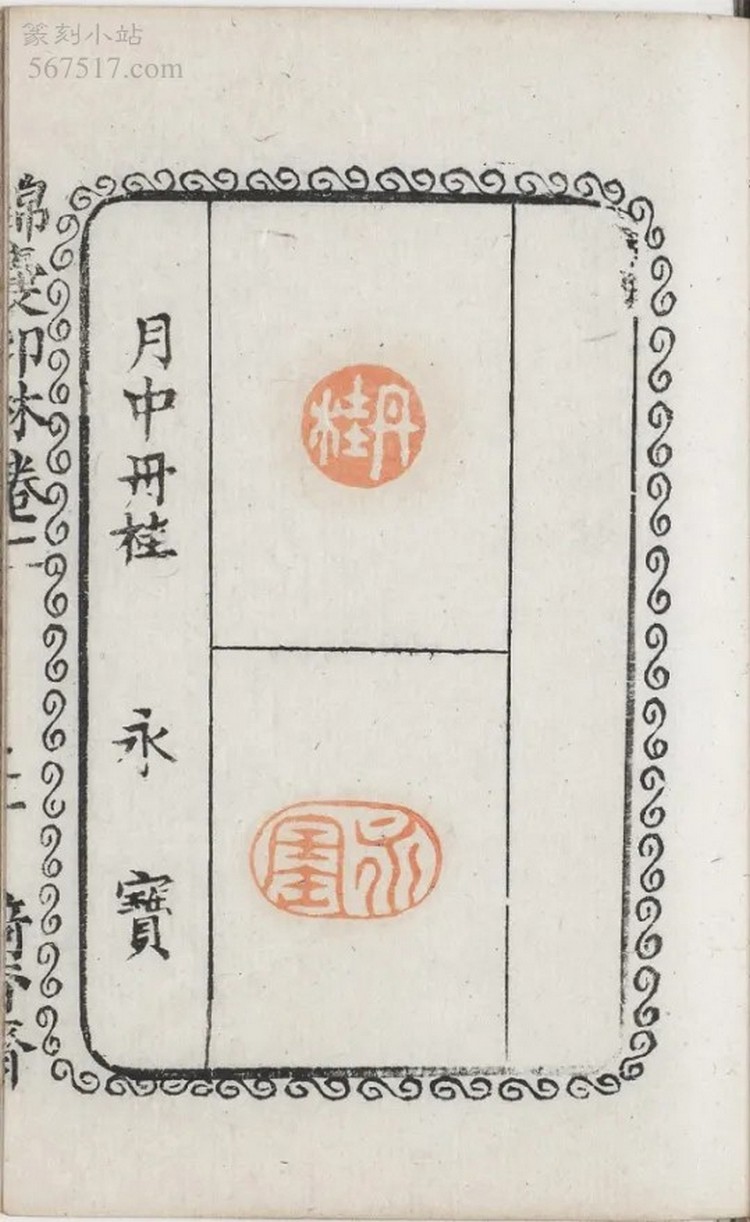 篆刻小站
567517.com
丹桂
永寶
月中丹桂
永寶
錦囊印林卷二